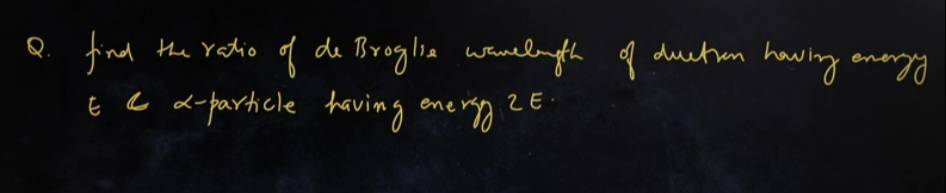 Q. find the ratio of de Broglie wavelength of duetron having energy
E & α-particle having energy 2E.